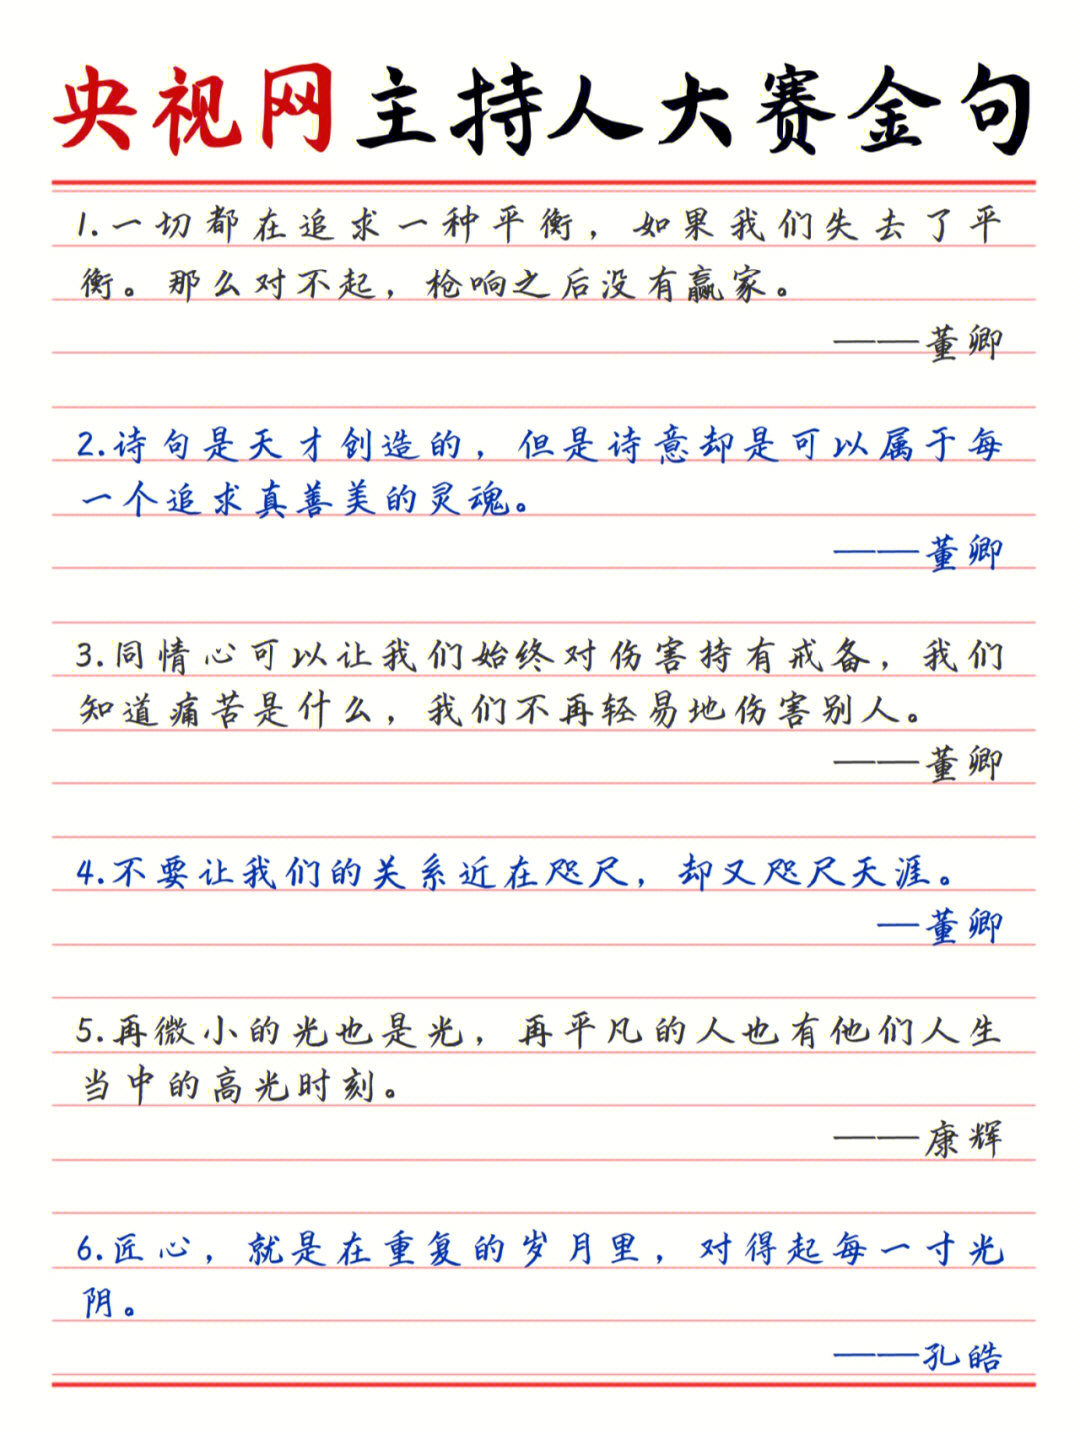 央视网主持人大赛金句
1.一切都在追求一种平衡，如果我们失去了平
衡。那么对不起，枪响之后没有赢家。
——董卿
2.诗句是天才创造的，但是诗意却是可以属于每
一个追求真善美的灵魂。
——董卿
3.同情心可以让我们始终对伤害持有戒备，我们
知道痛苦是什么，我们不再轻易地伤害别人。
——董卿
4.不要让我们的关系近在咫尺，却又咫尺天涯。
—董卿
5.再微小的光也是光，再平凡的人也有他们人生
当中的高光时刻。
——康辉
6.匠心，就是在重复的岁月里，对得起每一寸光
阴。
——孔皓